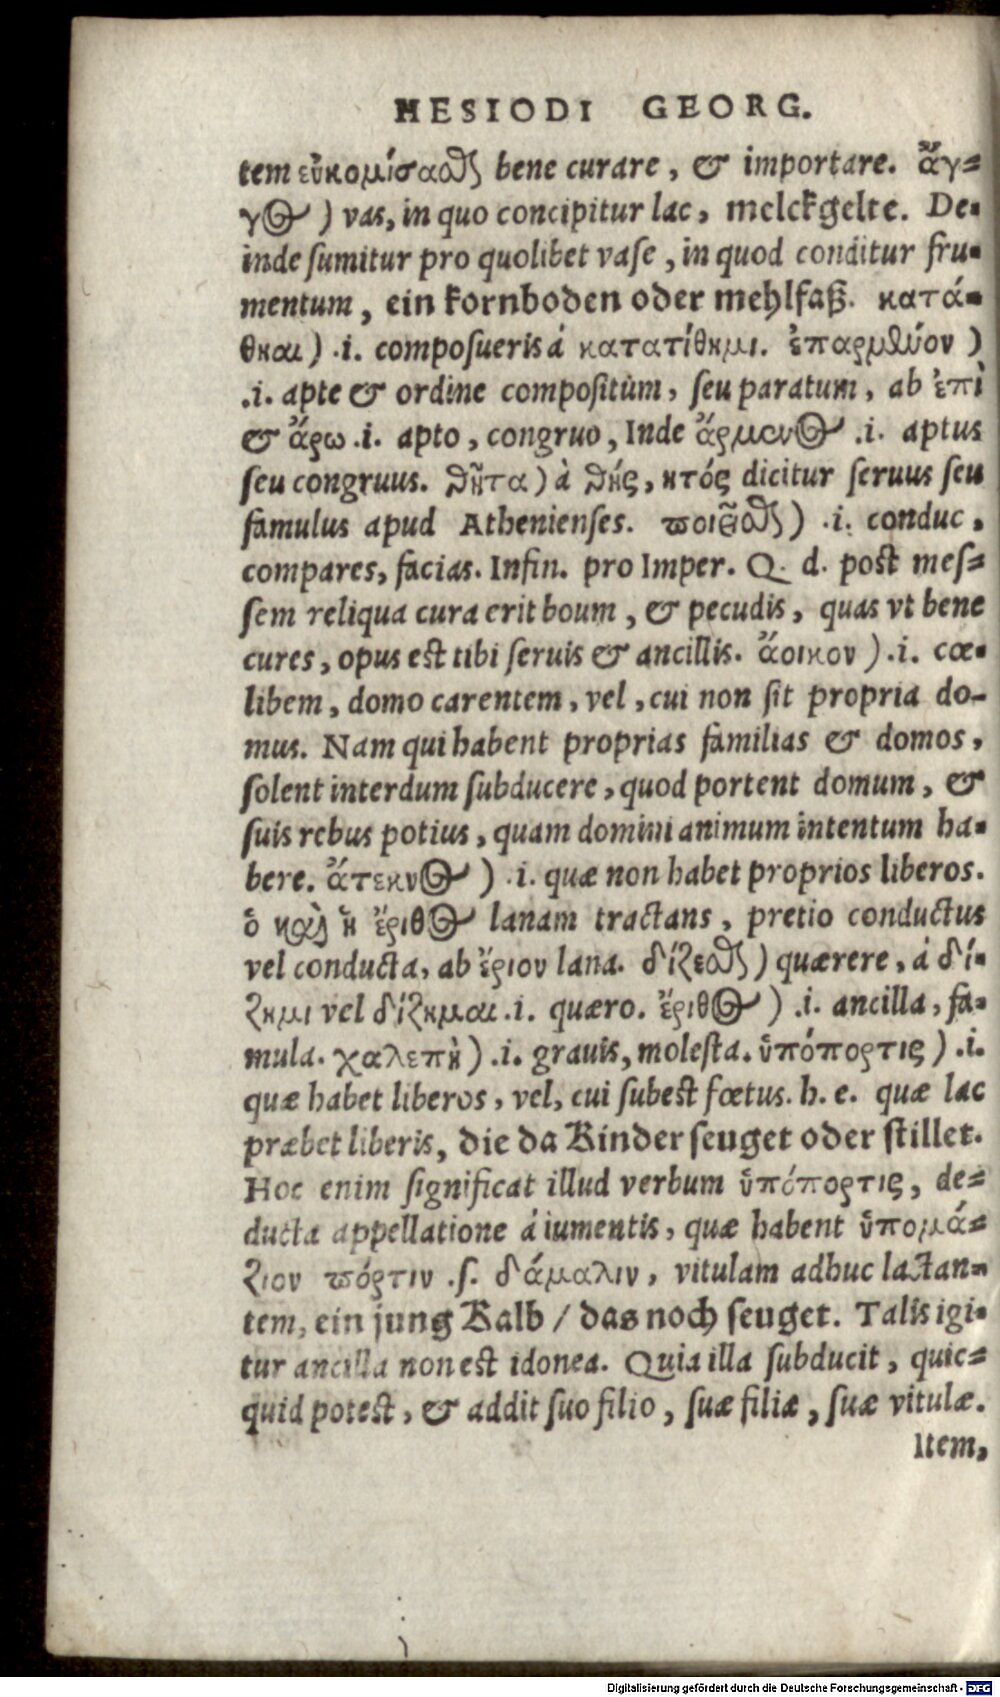 HESIODI GEORG.
tem εὐκομίσασθαι bene curare, & importare. ἄγ⸗
γος) vas, in quo concipitur lac, melckgelte. De⸗
inde sumitur pro quolibet vase, in quod conditur fru⸗
mentum, ein kornboden oder mehlfaß. κατά⸗
θηαι) .i. composueris á κατατίθημι. ἐπαρμῦνον)
.i. apte & ordine compositùm, seu paratum, ab ἐπὶ
& ἄρω .i. apto, congruo, Inde ἄρμενος .i. aptus
seu congruus. θῆτα) à θής, ητός dicitur seruus seu
famulus apud Athenienses. ποιεῖσθαι) .i. conduc,
compares, facias. Infin. pro Imper. Q. d. post mes⸗
sem reliqua cura erit boum, & pecudis, quas vt bene
cures, opus est tibi seruis & ancillis. ἄοικον) .i. cœ⸗
libem, domo carentem, vel, cui non sit propria do-
mus. Nam qui habent proprias familias & domos,
solent interdum subducere, quod portent domum, &
suis rebus potius, quam domini animum intentum ha⸗
bere. ἄτεκνος) .i. quæ non habet proprios liberos.
ὁ καὶ ἡ ἔριθος lanam tractans, pretio conductus
vel conducta, ab ἔριον lana. δίζεσθαι) quærere, á δί⸗
ζημι vel δίζημαι .i. quæro. ἔριθος) .i. ancilla, fa⸗
mula. χαλεπὴ) .i. grauis, molesta. ὑπόπορτις) .i.
quæ habet liberos, vel, cui subest fœtus. h. e. quæ lac
præbet liberis, die da Kinder seuget oder stillet.
Hoc enim significat illud verbum ὑπόπορτις, de⸗
ducta appellatione á iumentis, quæ habent ὑπομά⸗
ζιον πόρτιν .s. δάμαλιν, vitulam adhuc lactan⸗
tem, ein jung Kalb / das noch seuget. Talis igi⸗
tur ancilla non est idonea. Quia illa subducit, quic⸗
quid potest, & addit suo filio, suæ filiæ, suæ vitulæ.
Item,
Digitalisierung gefördert durch die Deutsche Forschungsgemeinschaft - DFG